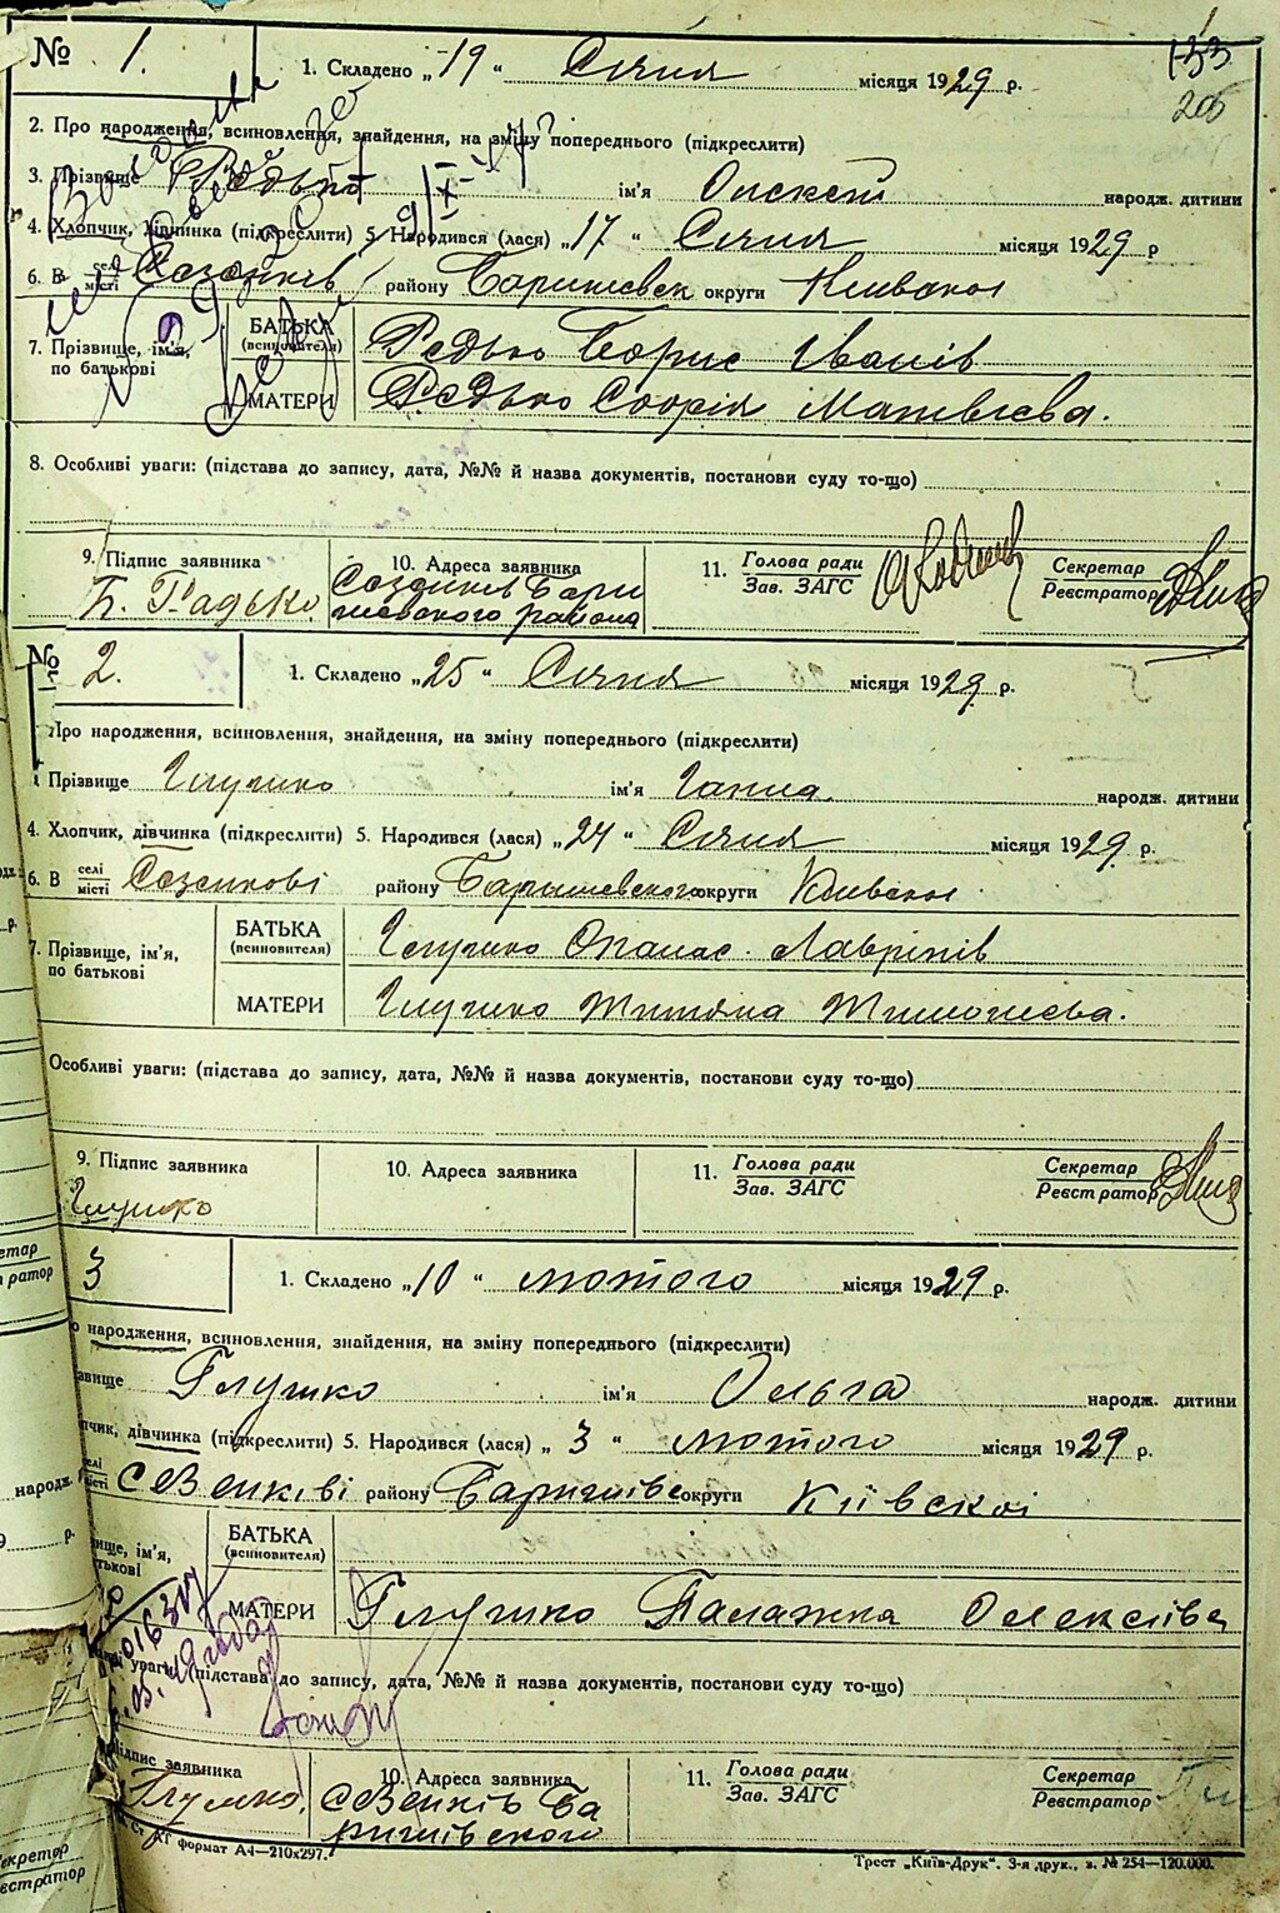 № 1. 1. Складено „19“ Січня місяця 1929 р. 133
205
2. Про народження, всиновлення, знайдення, на зміну попереднього (підкреслити)
3. Прізвище Редько ім'я народж. дитини
4. Хлопчик, дівчинка (підкреслити) 5. Народився (лася) „17“ Січня місяця 1929 р
6. В селі місті району Баришевск округи Київскої
7. Прізвище, ім'я, по батькові БАТЬКА (всиновителя) Редько Борис Іванів
МАТЕРИ Редько Софія Матвієва.
8. Особливі уваги: (підстава до запису, дата, №№ й назва документів, постанови суду то-що)
9. Підпис заявника 10. Адреса заявника 11. Голова ради Зав. ЗАГС Секретар Реєстратор
Б. Радько. Созонків Бари
шевского района
№ 2. 1. Складено „25“ Січня місяця 1929 р.
Про народження, всиновлення, знайдення, на зміну попереднього (підкреслити)
Прізвище Глушко ім'я Ганна народж. дитини
4. Хлопчик, дівчинка (підкреслити) 5. Народився (лася) „24“ Січня місяця 1929 р.
6. В селі місті Созонкові району Баришевского округи Київскої
7. Прізвище, ім'я, по батькові БАТЬКА (всиновителя) Глушко Опанас Лаврінів
МАТЕРИ Глушко Титяна Тимошева.
Особливі уваги: (підстава до запису, дата, №№ й назва документів, постанови суду то-що)
9. Підпис заявника 10. Адреса заявника 11. Голова ради Зав. ЗАГС Секретар Реєстратор
Глушко
3 1. Складено „10“ лютого місяця 1929 р.
народження, всиновлення, знайдення, на зміну попереднього (підкреслити)
звище Глушко ім'я Ольга народж. дитини
пчик, дівчинка (підкреслити) 5. Народився (лася) „3“ лютого місяця 1929 р.
селі місті району Баришівс округи Київскої
вище, ім'я, тькові БАТЬКА (всиновителя)
МАТЕРИ Глушко Палажка Олексіїва
уваги: (підстава до запису, дата, №№ й назва документів, постанови суду то-що)
Підпис заявника 10. Адреса заявника 11. Голова ради Зав. ЗАГС Секретар Реєстратор
Глушко. Ба
ришівского
формат А4—210х297.
Трест „Київ-Друк“. 3-я друк., з. № 254—120.000.